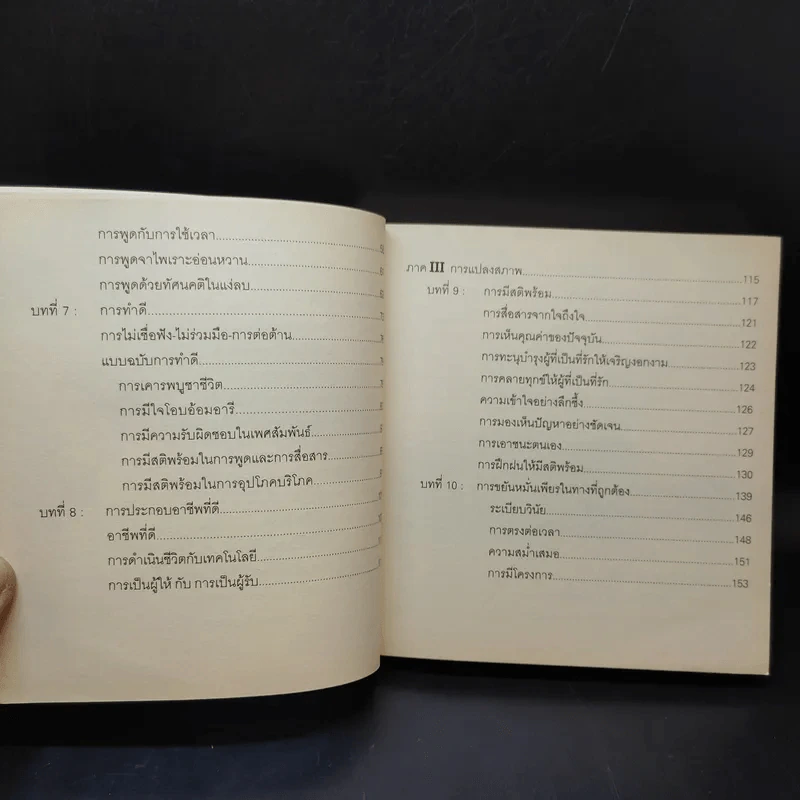 การพูดกับการใช้เวลา
การพูดจาไพเราะอ่อนหวาน
การพูดด้วยทัศนคติในแง่ลบ
บทที่ 7 : การทำดี
การไม่เชื่อฟัง-ไม่ร่วมมือ-การต่อต้าน
แบบฉบับการทำดี
การเคารพบูชาชีวิต
การมีใจโอบอ้อมอารี
การมีความรับผิดชอบในเพศสัมพันธ์
การมีสติพร้อมในการพูดและการสื่อสาร
การมีสติพร้อมในการอุปโภคบริโภค
บทที่ 8 : การประกอบอาชีพที่ดี
อาชีพที่ดี
การดำเนินชีวิตกับเทคโนโลยี
การเป็นผู้ให้ กับ การเป็นผู้รับ
ภาค III การแปลงสภาพ 115
บทที่ 9 : การมีสติพร้อม 117
การสื่อสารจากใจถึงใจ 121
การเห็นคุณค่าของปัจจุบัน 122
การทะนุบำรุงผู้ที่เป็นที่รักให้เจริญงอกงาม 123
การคลายทุกข์ให้ผู้ที่เป็นที่รัก 124
ความเข้าใจอย่างลึกซึ้ง 126
การมองเห็นปัญหาอย่างชัดเจน 127
การเอาชนะตนเอง 129
การฝึกฝนให้มีสติพร้อม 130
บทที่ 10 : การขยันหมั่นเพียรในทางที่ถูกต้อง 139
ระเบียบวินัย 146
การตรงต่อเวลา 148
ความสม่ำเสมอ 151
การมีโครงการ 153